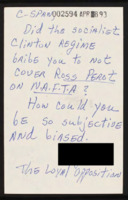 C-SPAN 002594 APR 1893
Did the socialist
Clinton Regime
bribe you to not
cover Ross Perot
on N.A.F.T.A?
How could you
be so subjective
and biased.
The Loyal Opposition